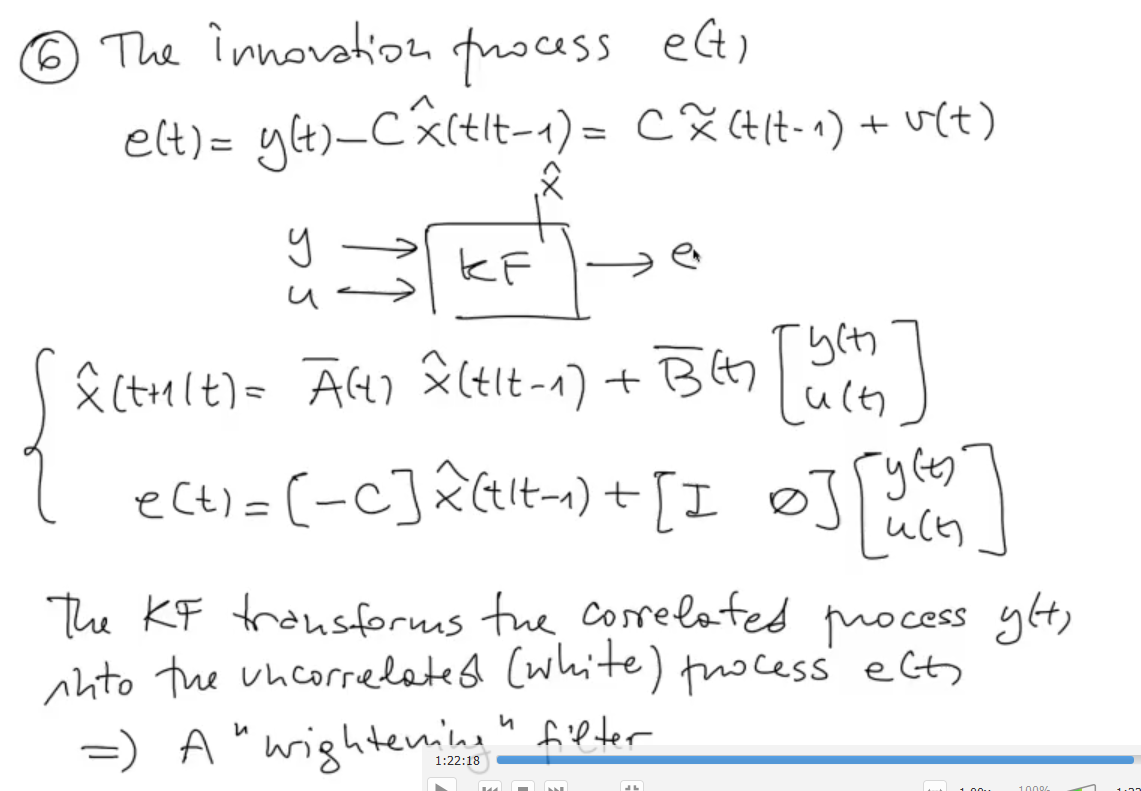 ⑥ The innovation process e(t)
e(t) = y(t) – C x̂(t|t-1) = C x̃(t|t-1) + v(t)
x̂
y
KF
e
u
x̂(t+1|t) = A̅(t) x̂(t|t-1) + B̅(t) [y(t) u(t)]
e(t) = [-C] x̂(t|t-1) + [I ∅] [y(t) u(t)]
The KF transforms the correlated process y(t)
into the uncorrelated (white) process e(t)
=> A "wightening" filter
1:22:18
1.00x 100%